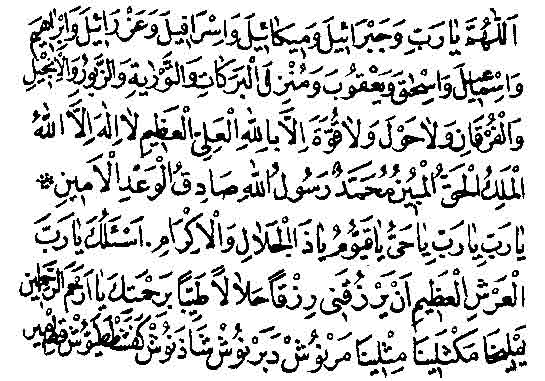 اَللّٰهُمَّ يَارَبِّ وَجَبْرَائِيلَ وَمِيكَائِيلَ وَاِسْرَافِيلَ وَعَزْرَائِيلَ وَاِبْرَاهِيمَ
وَاِسْمَاعِيلَ وَاِسْحٰقَ وَيَعْقُوبَ وَمُنْزِلَ الْبَرَكَاتِ وَالتَّوْرٰيةِ وَالزَّبُورِ وَالْاِنْجِيلِ
وَالْفُرْقَانِ وَلَاحَوْلَ وَلَاقُوَّةَ اِلَّا بِاللّٰهِ الْعَلِىِّ الْعَظِيمِ لَا اِلٰهَ اِلَّا اللّٰهُ
الْمَلِكُ الْحَقُّ الْمُبِينُ مُحَمَّدٌ رَسُولُ اللّٰهِ صَادِقُ الْوَعْدِ الْاَمِينِ *
يَارَبِّ يَارَبِّ يَاحَىُّ يَاقَيُّومُ يَاذَا الْجَلَالِ وَالْاِكْرَامِ . اَسْئَلُكَ يَارَبَّ
الْعَرْشِ الْعَظِيمِ اَنْ يَرْزُقَنِى رِزْقًا حَلَالًا طَيِّبًا بِرَحْمَتِكَ يَا اَرْحَمَ الرَّاحِمِينَ
يَمْلِيخَا مَكْثَلِينَا مِثْلِينَا مَرْنُوشْ دَبَرْنُوشْ شَاذَنُوشْ كَفَشْطَطَيُوشْ قِطْمِيرْ